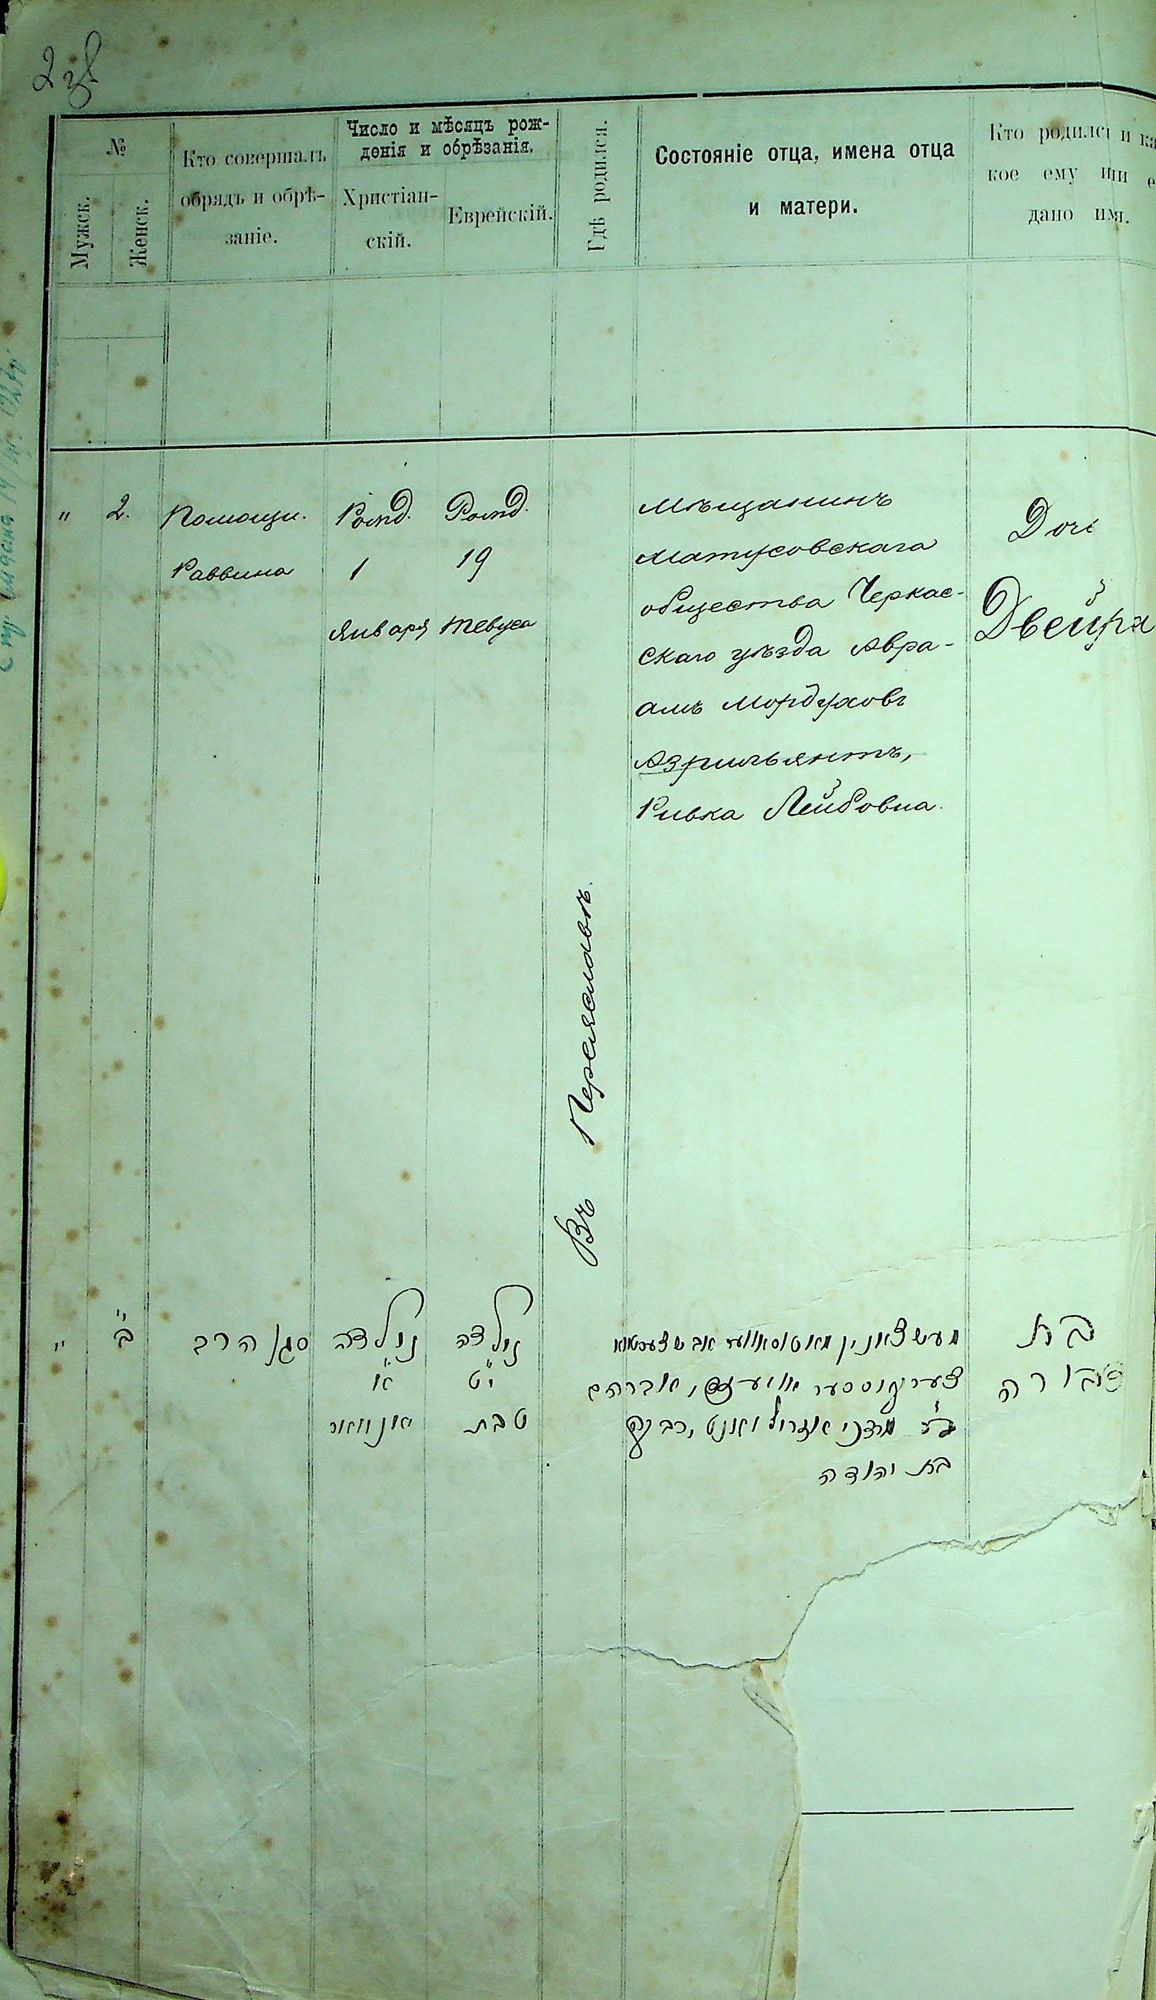 2 об
№
Мужск.
Женск.
Кто совершалъ
обрядъ и обрѣ-
заніе.
Число и мѣсяцъ рож-
денія и обрѣзанія.
Христіан-
скій.
Еврейскій.
Гдѣ родился.
Состояніе отца, имена отца
и матери.
Кто родился и ка
кое ему или е
дано имя.
" 2.
Помощн.
Раввина
Рожд.
1
Января
Рожд.
19
Тевуса
Въ Переяславѣ.
Мѣщанинъ
Матусовскаго
общества Черкас-
скаго уѣзда Авра-
амъ Мордуховъ
Азрильянтъ,
Ривка Лейбовна.
Дочь
Двейра
" ב
סגן הרב
נולדה
א
יאנוואר
נולדה
יט
טבת
אברהם
מרדכי
בת יהודה
בת